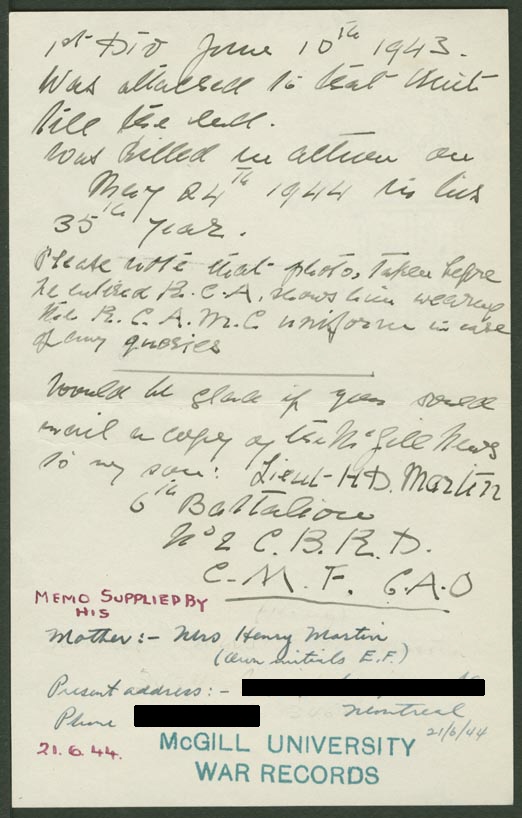 1st Div June 10th 1943.
Was attached to that Unit
till the end.
Was killed in action on
May 24th 1944 in his
35th year.
Please note that photo, taken before
he entered R.C.A, shows him wearing
the R.C.A.M.C uniform in case
of any queries
Would be glad if you would
mail a copy of the McGill News
to my son: Lieut H.D. Martin
6th Battalion
No 2 C.B.R.D.
C.M.F. C.A.O
MEMO SUPPLIED BY
HIS
Mother:- Mrs Henry Martin
(Own initials E.F.)
Present address:-
Montreal
Phone
21/6/44
21.6.44.
McGILL UNIVERSITY
WAR RECORDS